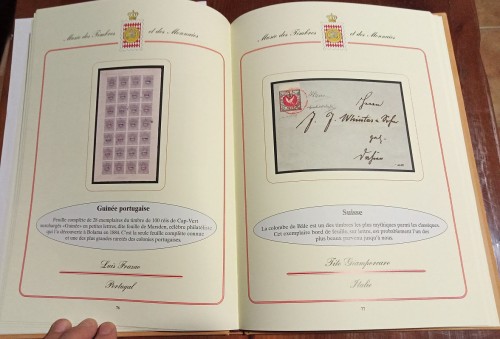 Musée des Timbres et des Monnaies
Guinée portugaise
Feuille complète de 28 exemplaires du timbre de 100 réis de Cap-Vert
surchargés «Guinée» en petites lettres, dite feuille de Marsden, célèbre philatéliste
qui l'a découverte à Bolama en 1884. C'est la seule feuille complète connue
et une des plus grandes raretés des colonies portugaises.
Luis Frazao
Portugal
76
Musée des Timbres et des Monnaies
Herrn
J. J.
Suisse
La colombe de Bâle est un des timbres les plus mythiques parmi les classiques.
Cet exemplaire bord de feuille, sur lettre, est probablement l'un des
plus beaux parvenu jusqu'à nous.
Tito Giamporcaro
Italie
77